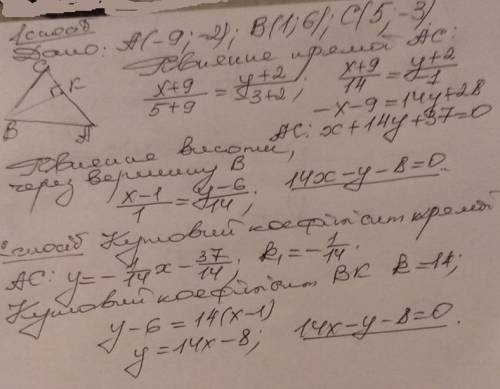 1 спосіб
Дано: A(-9; -2); B(1; 6); C(5; -3)
Рівнення прямої AC:
(x+9)/(5+9) = (y+2)/(-3+2); (x+9)/14 = (y+2)/-1
-x-9=14y+28
AC: x+14y+37=0
C
K
B
A
Рівнення висоти,
через вершину B
(x-1)/1 = (y-6)/14; 14x-y-8=0.
2 спосіб Кутовий коефіцієнт прямої
AC: y=-1/14 x - 37/14; k₁=-1/14.
Кутовий коефіцієнт BK k=14;
y-6=14(x-1)
y=14x-8; 14x-y-8=0.